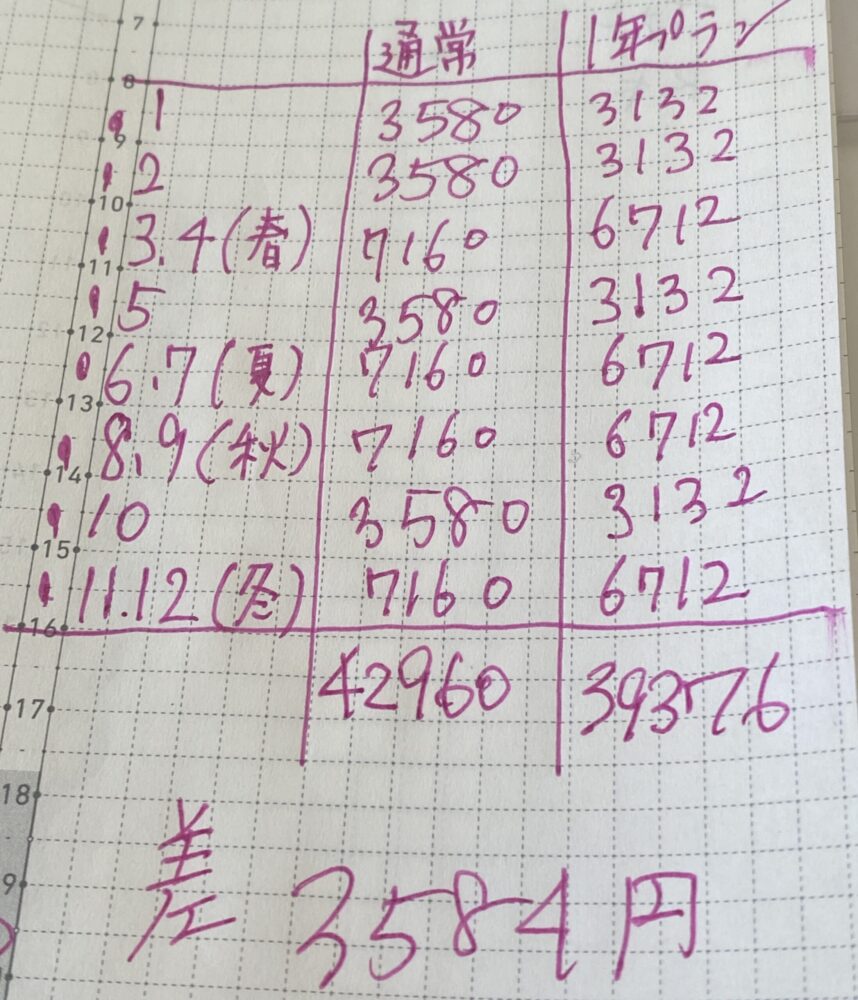 7
通常 1年プラン
8
1 3580 3132
9
2 3580 3132
10
3.4(春) 7160 6712
11
5 3580 3132
12
6.7(夏) 7160 6712
13
8.9(秋) 7160 6712
14
10 3580 3132
15
11.12(冬) 7160 6712
16
42960 39376
17
18
差 3584円
9